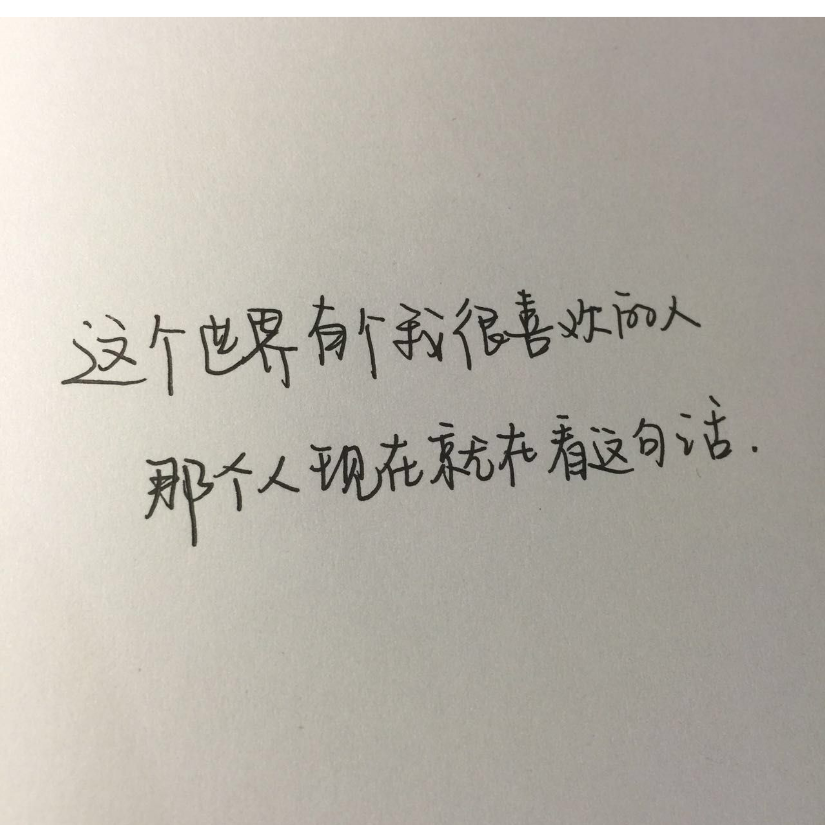 这个世界有个我很喜欢的人
那个人现在就在看这句话.